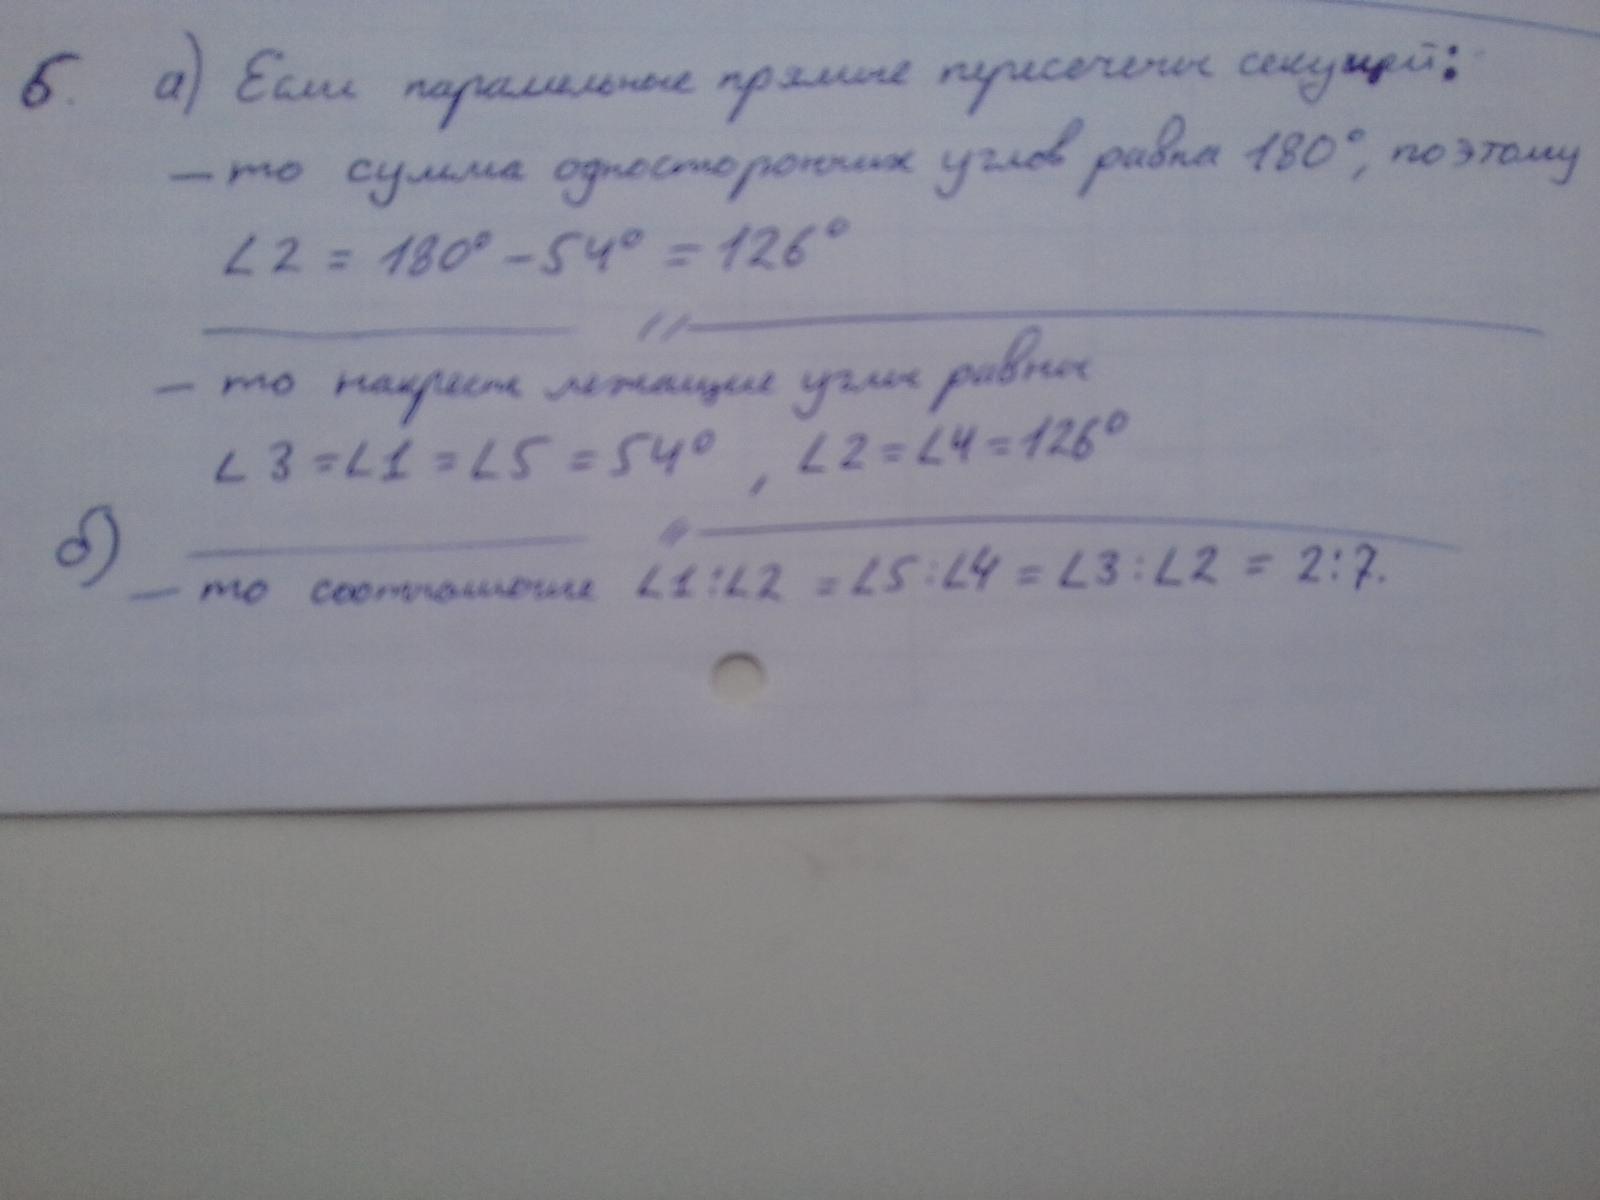 5. а) Если параллельные прямые пересечены секущей:
— то сумма односторонних углов равна 180°, поэтому
∠2 = 180° - 54° = 126°
—— // ——
— то накрест лежащие углы равны
∠3 = ∠1 = ∠5 = 54°, ∠2 = ∠4 = 126°
—— // ——
б) — то соотношение ∠1:∠2 = ∠5:∠4 = ∠3:∠2 = 2:7.